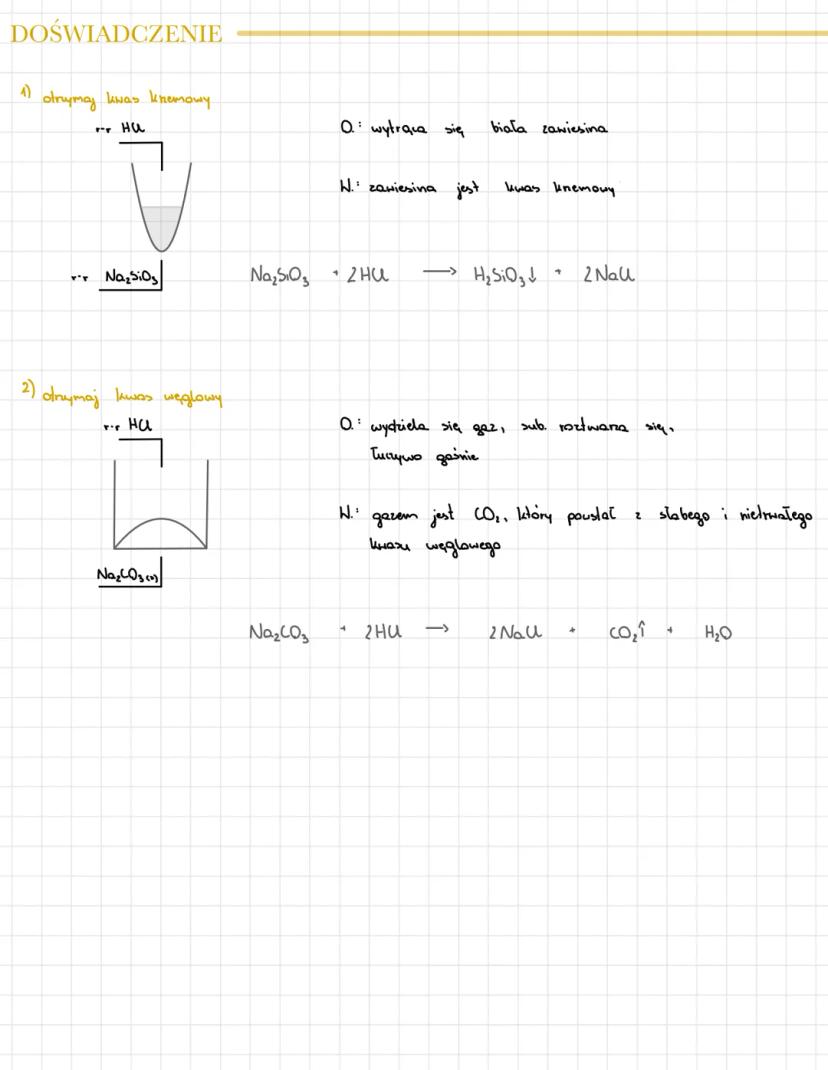 DOŚWIADCZENIE
1) otrzymaj kwas krzemowy
r-r HCl
O.: wytrąca się biała zawiesina
W.: zawiesiną jest kwas krzemowy
r-r Na₂SiO₃
Na₂SiO₃ + 2HCl → H₂SiO₃↓ + 2NaCl
2) otrzymaj kwas węglowy
r-r HCl
O.: wydziela się gaz, sub. roztwarza się,
łuczywo gaśnie
W.: gazem jest CO₂, który powstał z słabego i nietrwałego
kwasu węglowego
Na₂CO₃(s)
Na₂CO₃ + 2HCl → 2NaCl + CO₂↑ + H₂O